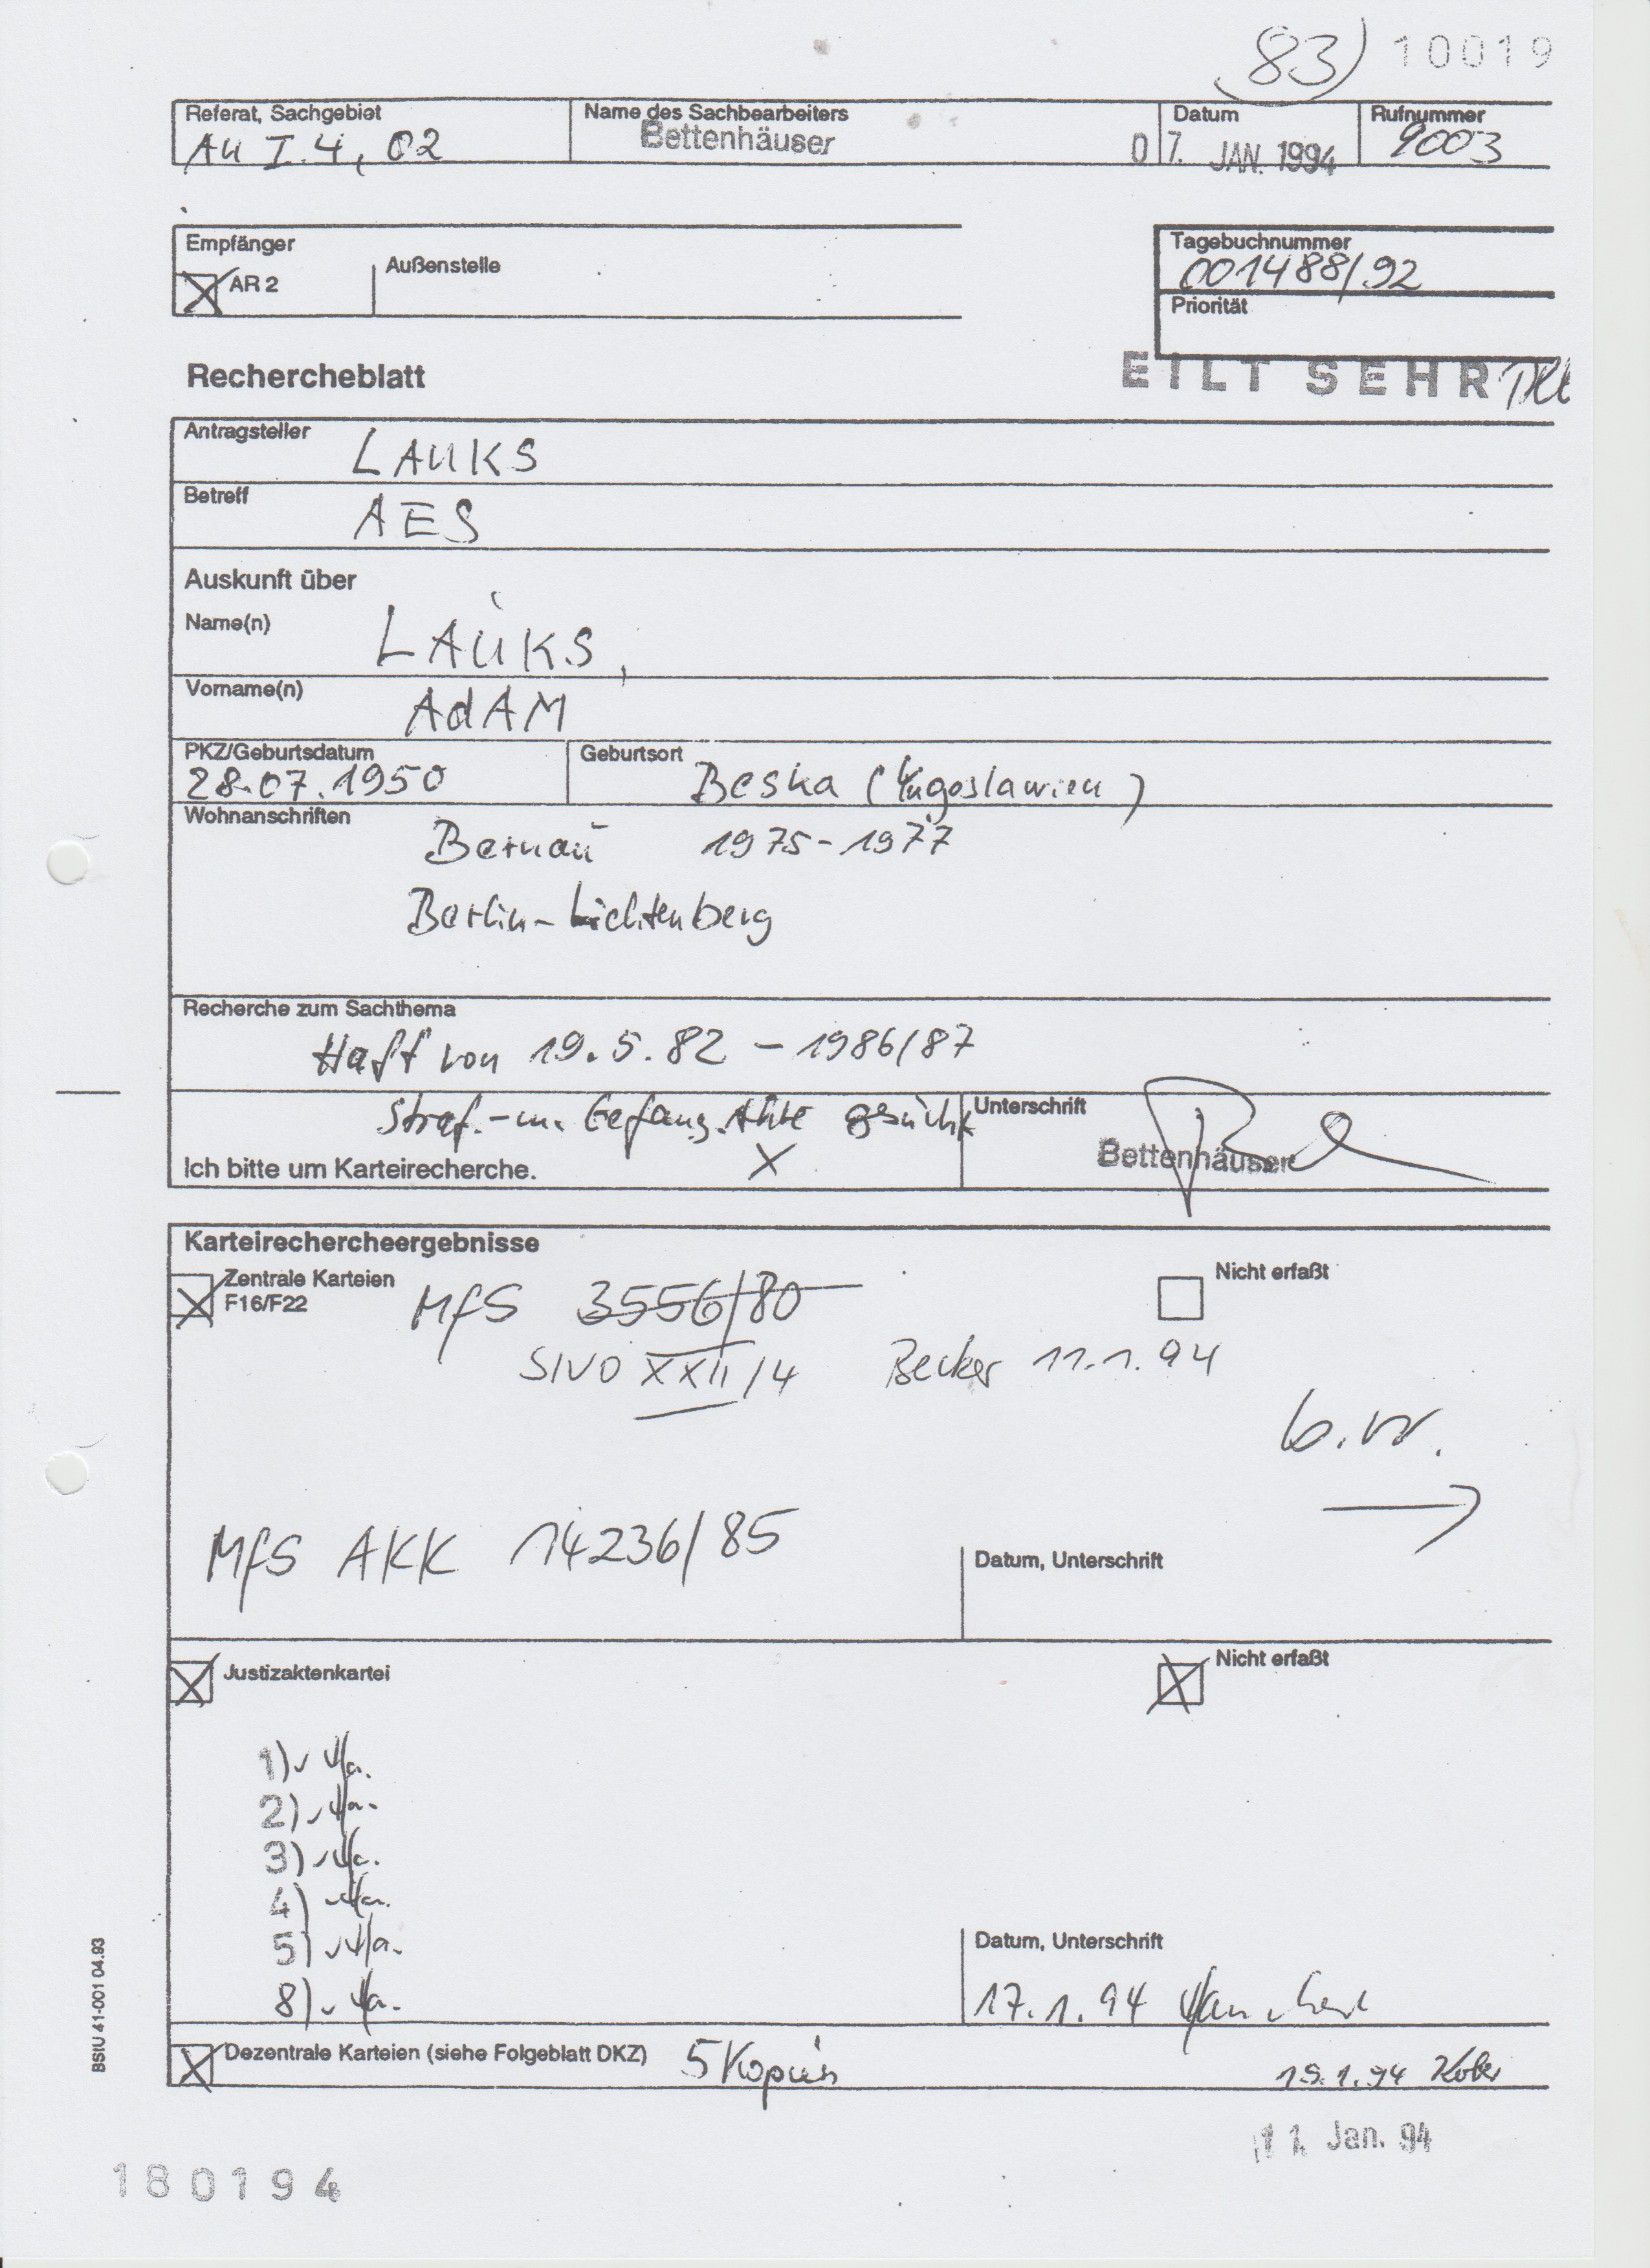 83) 10019
Referat, Sachgebiet Name des Sachbearbeiters Datum Rufnummer
AU I.4, 02 Bettenhäuser 07. JAN. 1994 9003
Empfänger Außenstelle Tagebuchnummer
AR 2 001488/92
Priorität
Rechercheblatt EILT SEHR
Antragsteller LAUKS
Betreff AES
Auskunft über
Name(n) LAUKS,
Vorname(n) AdAM
PKZ/Geburtsdatum Geburtsort
28.07.1950 Beska (Yugoslawien)
Wohnanschriften
Bernau 1975-1977
Berlin-Lichtenberg
Recherche zum Sachthema
Haft von 19.5.82 - 1986/87
Straf.-u. Gefang. Akte gesucht Unterschrift
Ich bitte um Karteirecherche. X Bettenhäuser
Karteirechercheergebnisse
Zentrale Karteien F16/F22 MfS 3556/80 Nicht erfaßt
SIVO XXII/4 Becker 11.1.94
b.w.
MfS AKK 14236/85 Datum, Unterschrift
Justizaktenkartei Nicht erfaßt
1)
2)
3)
4)
5) Datum, Unterschrift
8) 17.1.94
Dezentrale Karteien (siehe Folgeblatt DKZ) 5 Kopien 19.1.94
11. Jan. 94
180194
BStU 41-001 04.93